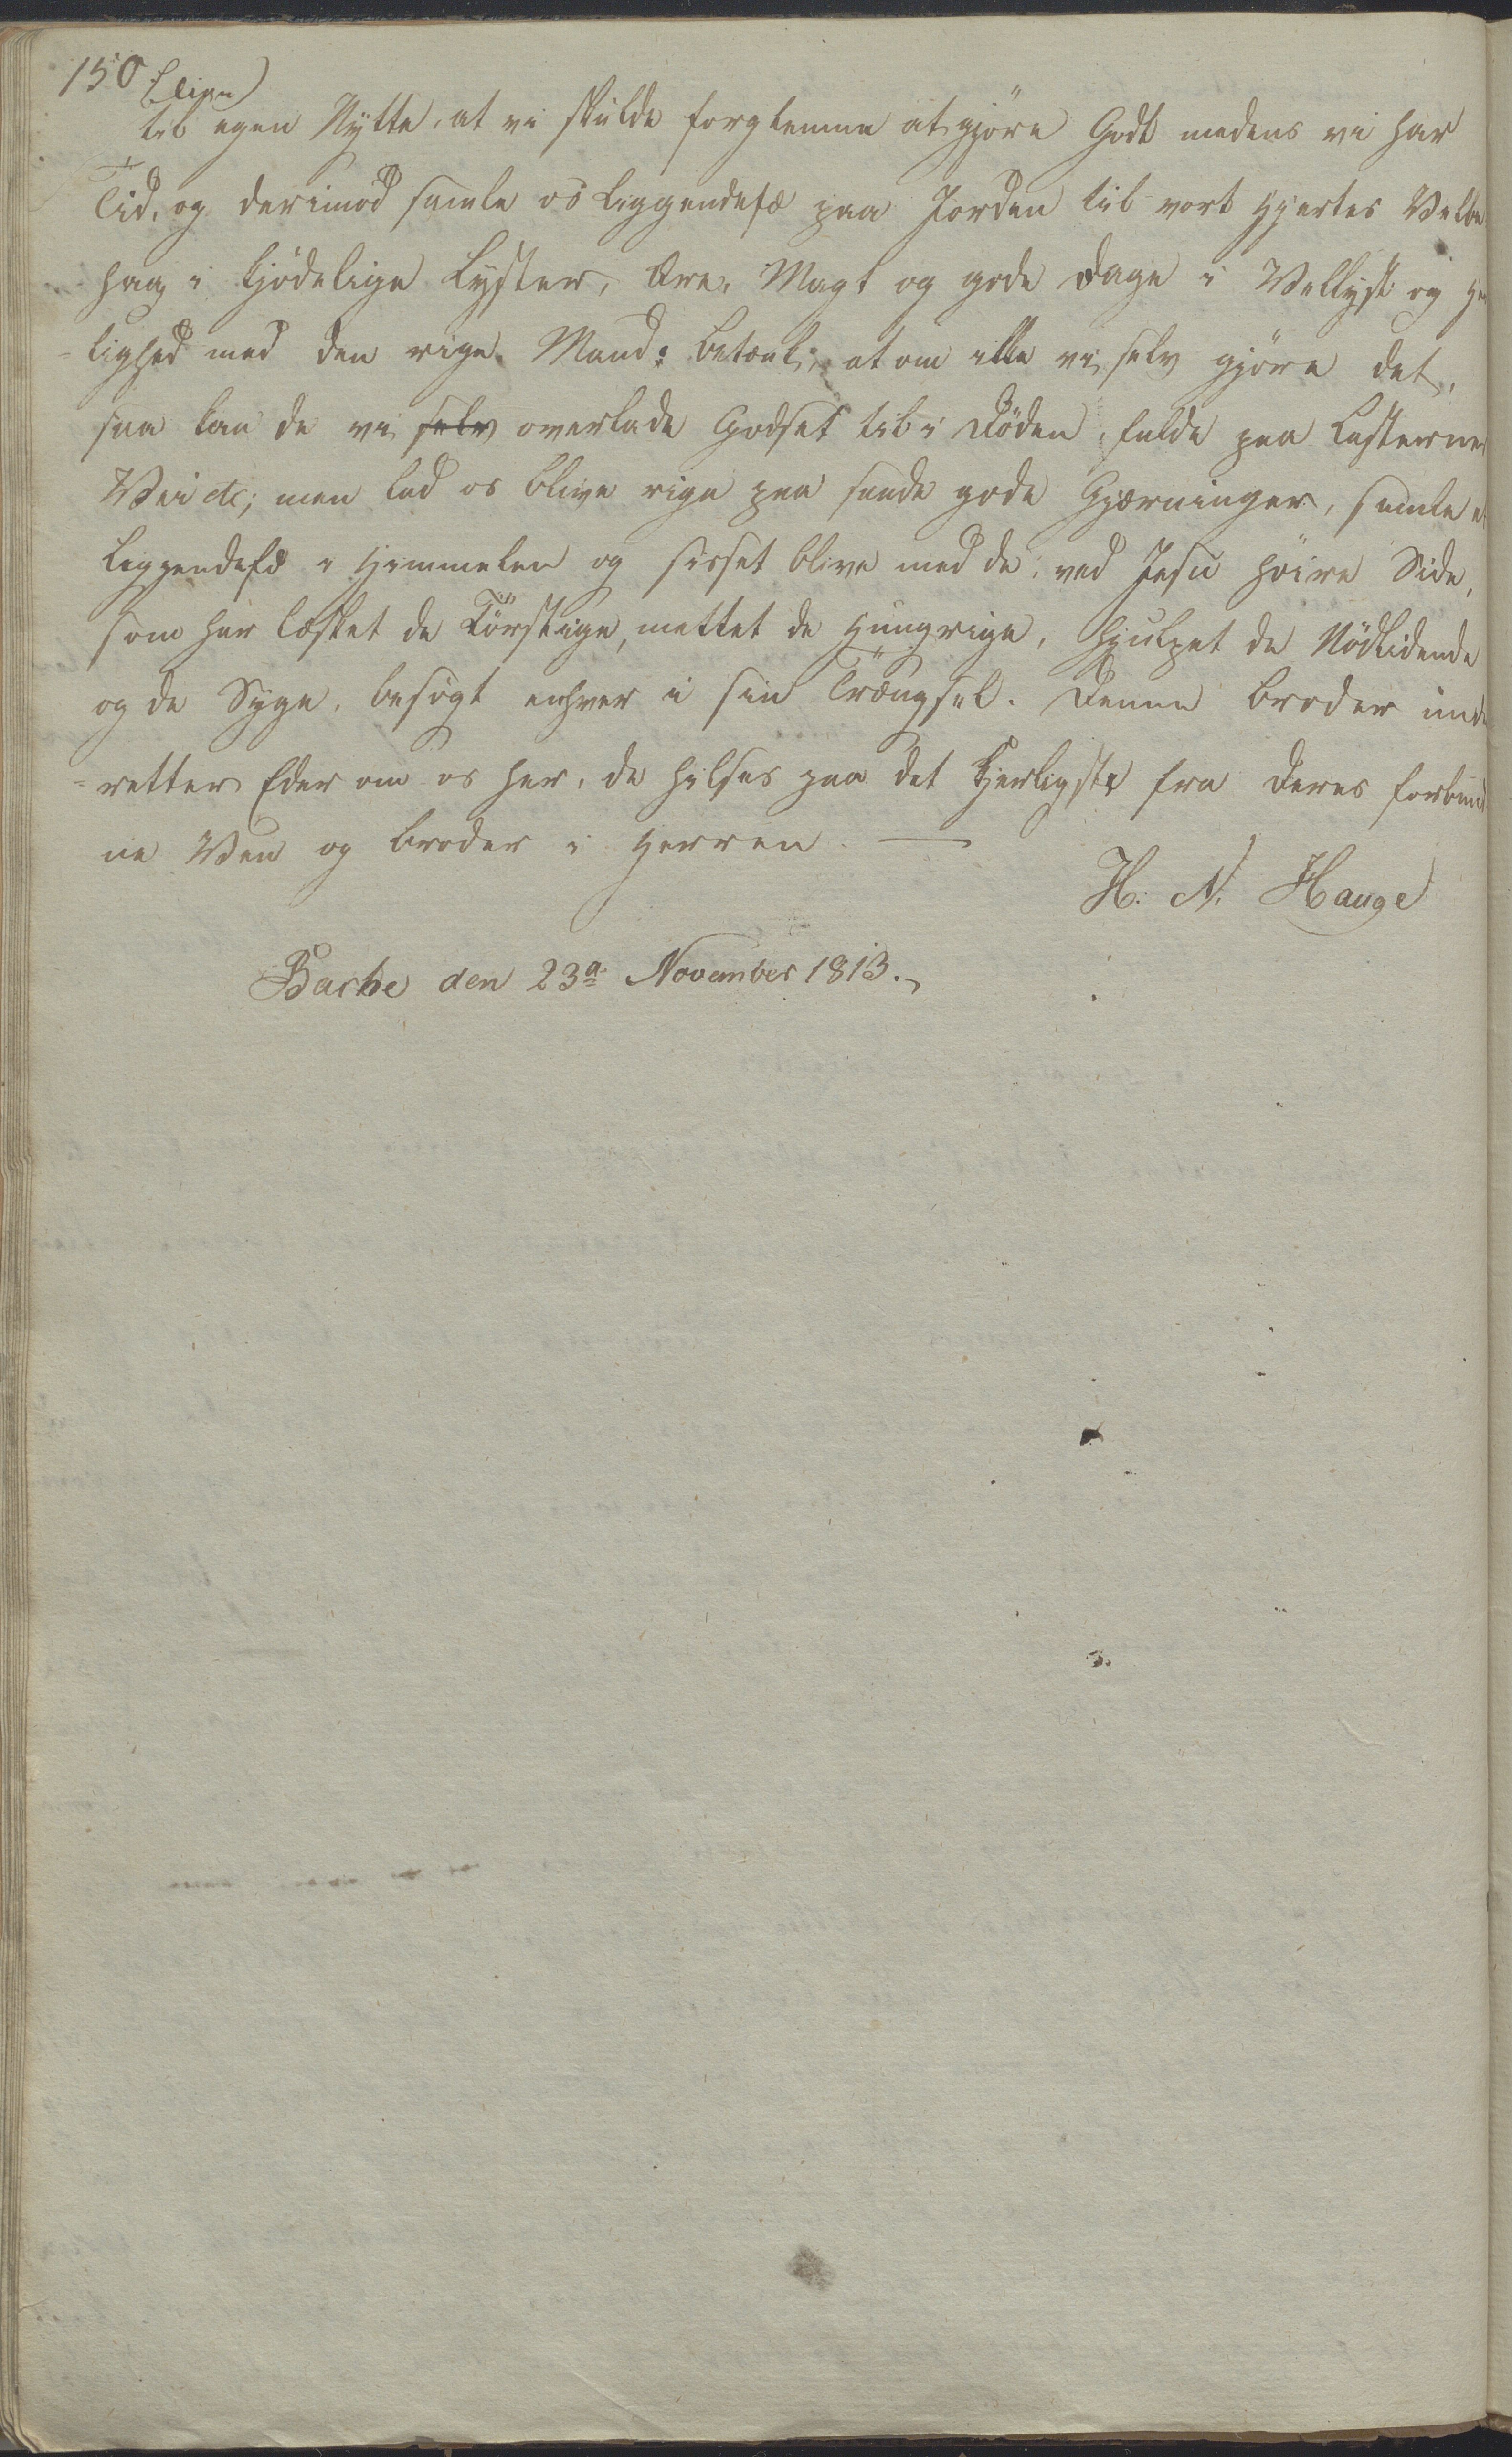 150
(lign)
til egen Nytte, at vi skulde forglemme at gjöre Godt medens vi har
Tid, og derimod samle os Liggendefæ paa Jorden til vort Hjertes Velbe
hag i kjödelige Lyster, Ære, Magt og gode Dage i Vellyst og Her
-lighed med den rige Mand: betænk, at om ikke vi selv gjöre det,
saa kan de vi selv overlade Godset til i Döden, falde paa Lasternes
Vei etc; men lad os blive rige paa sande gode Gjærninger, samle et
Liggendefæ i Himmelen og visset blive med de, ved Jesu höire Side,
som har læsket de Törstige, mettet de Hungrige, hjulpet de Nödlidende
og de Syge, besögt enhver i sin Trængsel. Denne Broder unde
=retter Eder om os her, de hilses paa det Kjerligste fra Deres forbund
ne Ven og Broder i Herren. —
H. N. Hauge
Bache den 23de November 1813.